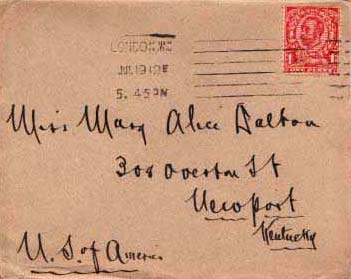 LONDON. W.C
JUL 19 12
5. 45 PM
ONE PENNY
Miss Mary Alice Dalton
308 Overton St
Newport
Kentucky
U. S. of America